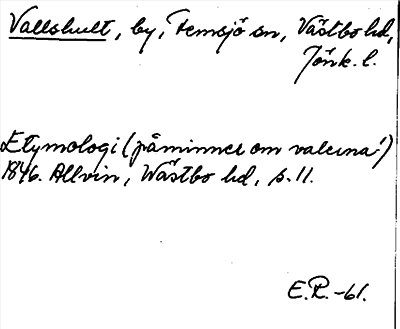 Vallshult, by, Femsjö sn, Västbo hd,
Jönk. l.
Etymologi (påminner om valerna!)
1846. Allvin, Wästbo hd, s. 11.
E.R.-61.